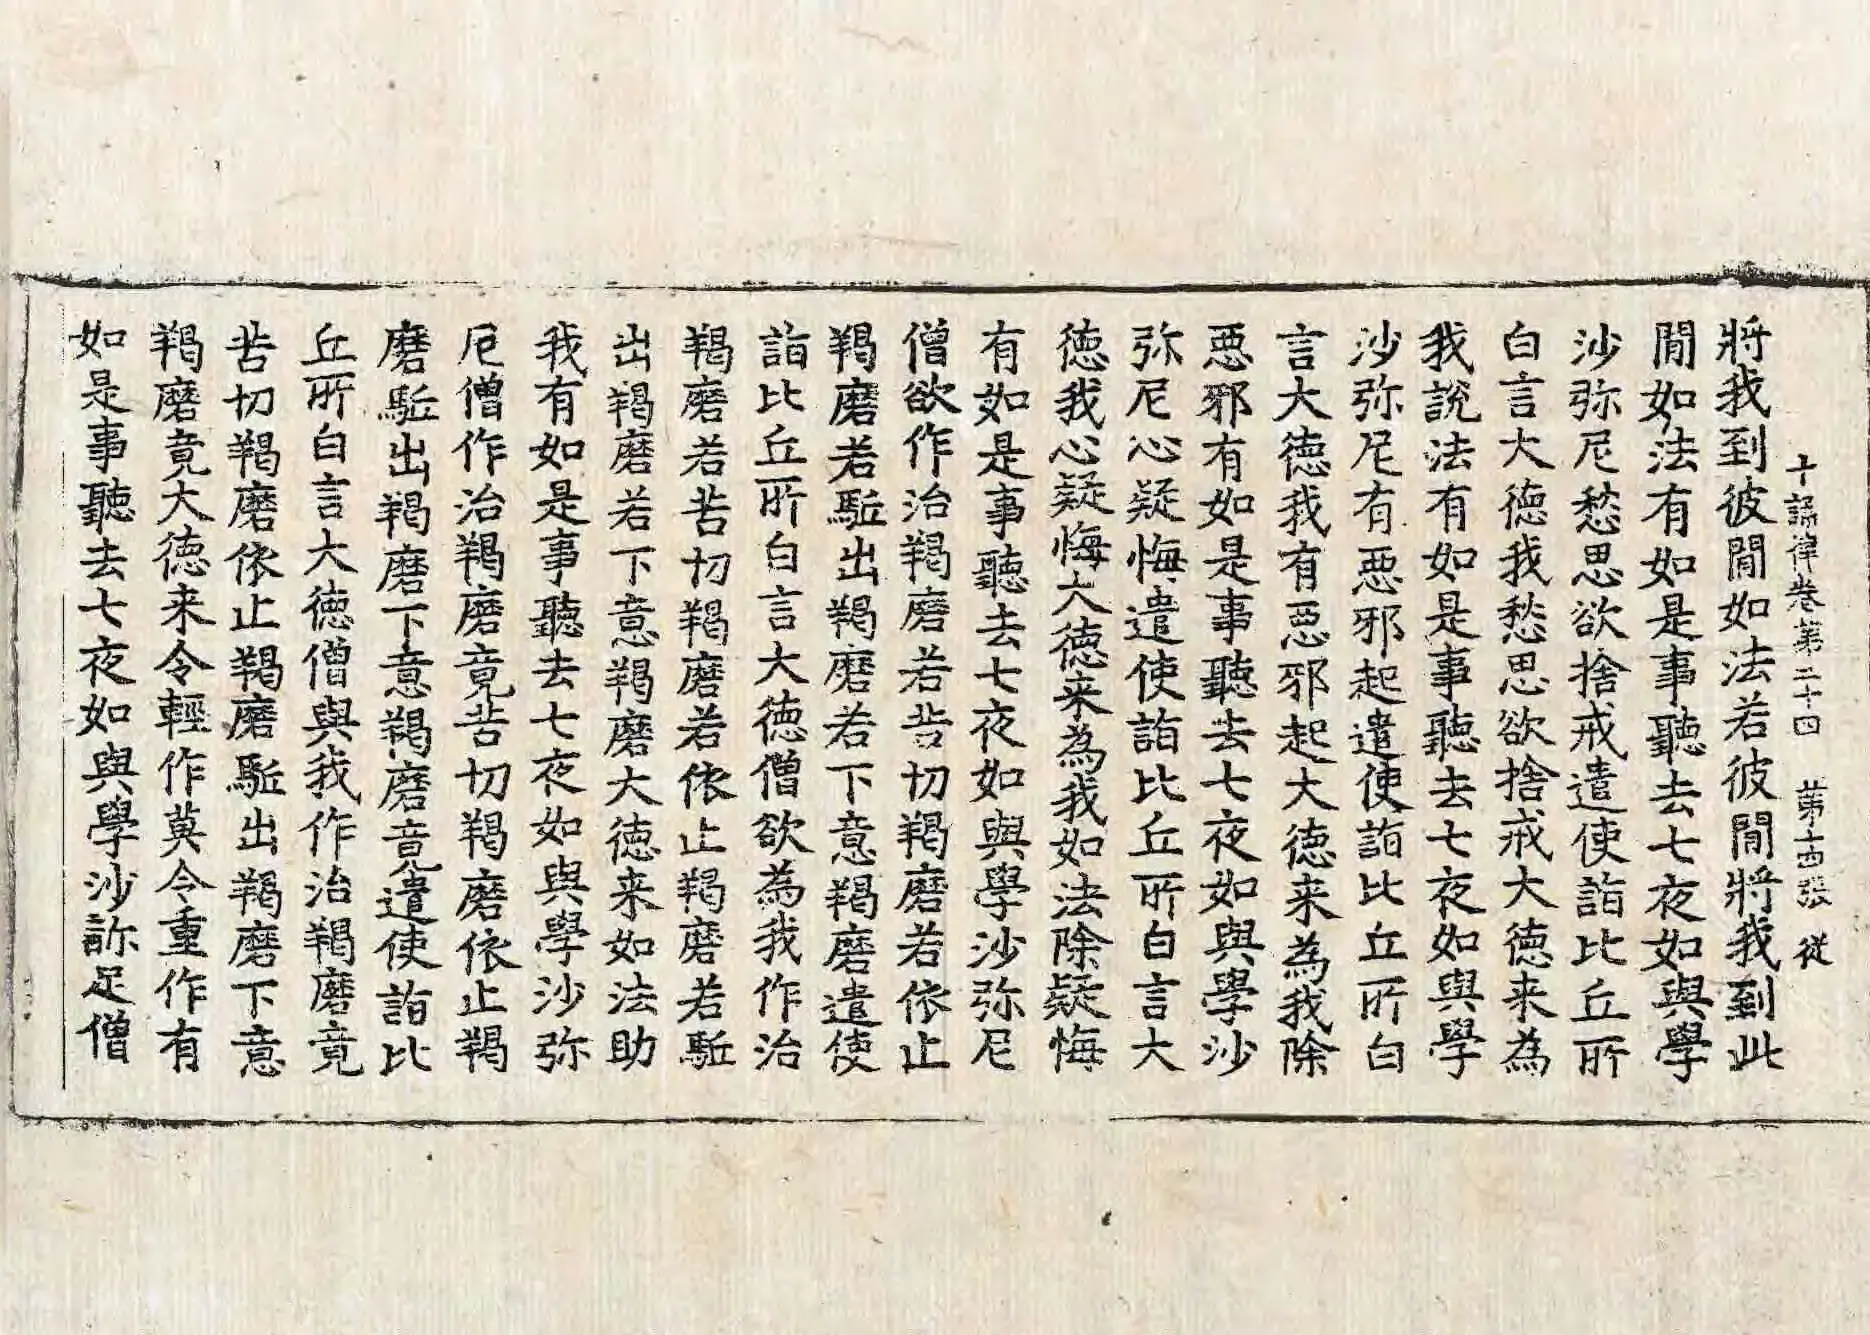 十誦律卷第二十四 第十四張 從
將我到彼閒如法若彼閒將我到此
閒如法有如是事聽去七夜如與學
沙弥尼愁思欲捨戒遣使詣比丘所
白言大德我愁思欲捨戒大德来為
我說法有如是事聽去七夜如與學
沙弥尼有惡邪起遣使詣比丘所白
言大德我有惡邪起大德来為我除
惡邪有如是事聽去七夜如與學沙
弥尼心疑悔遣使詣比丘所白言大
德我心疑悔大德来為我如法除疑悔
有如是事聽去七夜如與學沙弥尼
僧欲作治羯磨若苦切羯磨若依止
羯磨若駈出羯磨若下意羯磨遣使
詣比丘所白言大德僧欲為我作治
羯磨若苦切羯磨若依止羯磨若駈
出羯磨若下意羯磨大德来如法助
我有如是事聽去七夜如與學沙弥
尼僧作治羯磨竟苦切羯磨依止羯
磨駈出羯磨下意羯磨竟遣使詣比
丘所白言大德僧與我作治羯磨竟
苦切羯磨依止羯磨駈出羯磨下意
羯磨竟大德来令輕作莫令重作有
如是事聽去七夜如與學沙弥尼僧